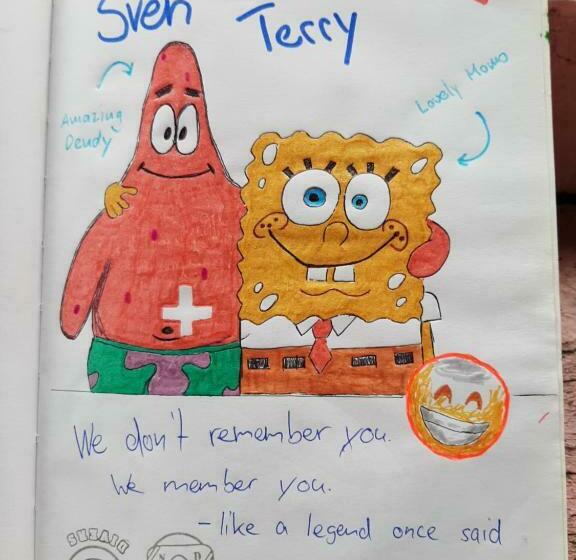 Sven
Terry
Amazing
Dendy
Lovely Momo
We don't remember you.
We member you.
- like a legend once said